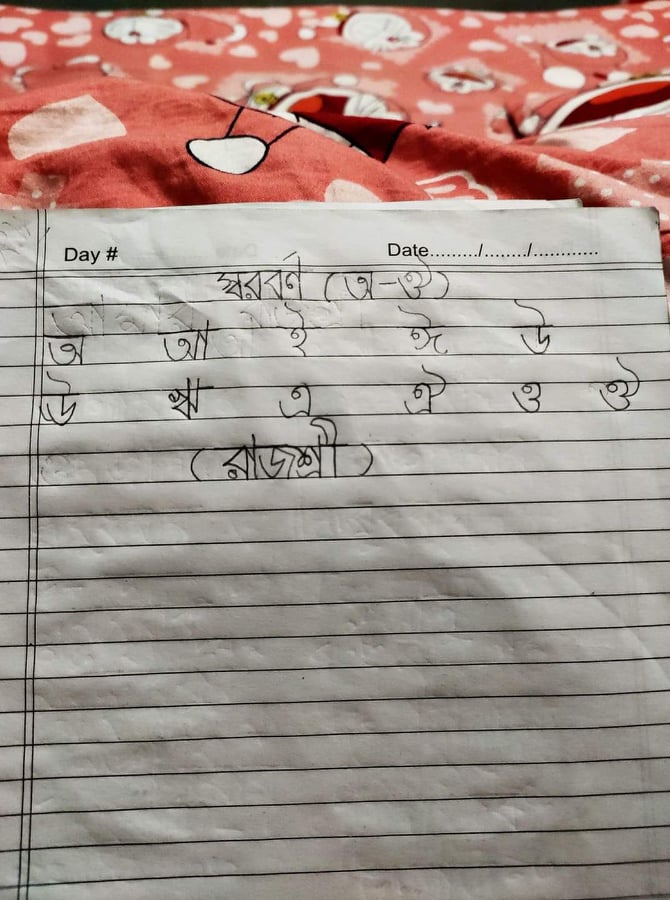 Day # Date........./......../............
স্বরবর্ণ (অ-ঔ)
অ আ ই ঈ উ
ঊ ঋ এ ঐ ও ঔ
(রাজশ্রী)